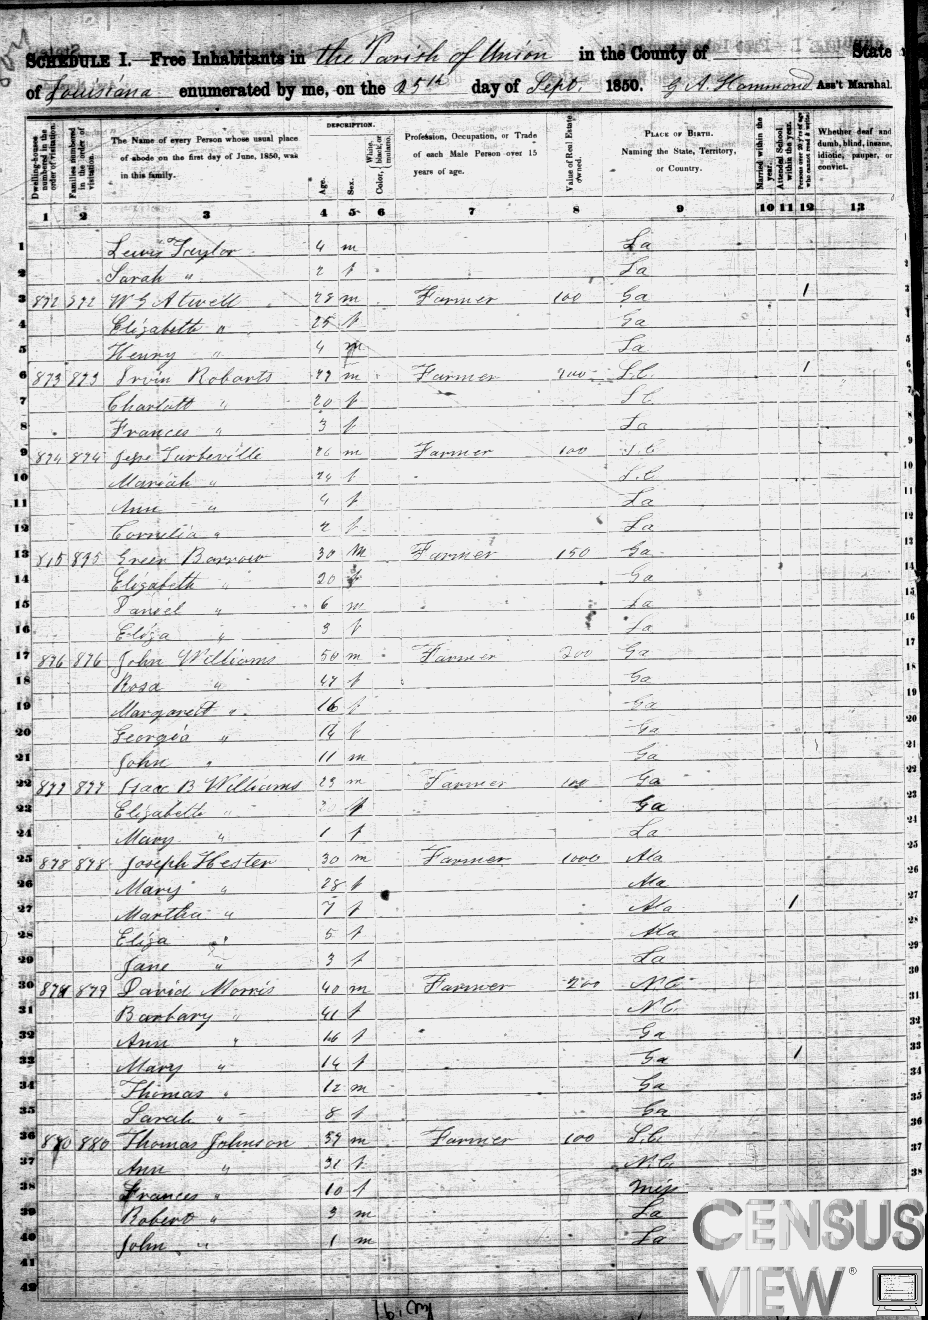 SCHEDULE I.—Free Inhabitants in the Parish of Union in the County of State
of Louisiana enumerated by me, on the 25th day of Sept. 1850. G A Hammond Ass't Marshal.
Dwelling-houses numbered in the order of visitation.
Families numbered in the order of visitation.
The Name of every Person whose usual place of abode on the first day of June, 1850, was in this family.
DESCRIPTION.
Age.
Sex.
Color, White, black, or mulatto.
Profession, Occupation, or Trade of each Male Person over 15 years of age.
Value of Real Estate owned.
PLACE OF BIRTH. Naming the State, Territory, or Country.
Married within the year.
Attended School within the year.
Persons over 20 y'rs of age who cannot read & write.
Whether deaf and dumb, blind, insane, idiotic, pauper, or convict.
1 2 3 4 5 6 7 8 9 10 11 12 13
1 Lewis Traylor 4 m La
2 Sarah " 2 f La
3 872 872 W G Atwell 28 m Farmer 100 Ga 1
4 Elizabeth " 25 f Ga
5 Henry " 4 m La
6 873 873 Irvin Robarts 27 m Farmer 200 S.C. 1
7 Charlott " 20 f S C
8 Frances " 3 f La
9 874 874 Jesse Turbeville 26 m Farmer 100 S.C
10 Mariah " 24 f S.C
11 Ann " 4 f La
12 Cornelia " 2 f La
13 875 Green Barrow 30 M Farmer 150 Ga
14 Elizabeth " 20 f Ga
15 Daniel " 6 m La
16 Eliza " 3 f La
17 876 876 John Williams 50 m Farmer 200 Ga
18 Rosa " 47 f Ga
19 Margarett " 16 f Ga
20 Georgia " 14 f Ga
21 John " 11 m Ga
22 877 877 Isaac B Williams 23 m Farmer 100 Ga
23 Elizabeth " f Ga
24 Mary " 1 f La
25 878 878 Joseph Hester 30 m Farmer 1000 Ala
26 Mary " 28 f Ala
27 Martha " 7 f Ala 1
28 Eliza " 5 f Ala
29 Jane " 3 f La
30 879 879 David Morris 40 m Farmer 200 N C
31 Barbary " 41 f N C.
32 Ann " 16 f Ga
33 Mary " 14 f Ga 1
34 Thomas " 12 m Ga
35 Sarah " 8 f Ga
36 880 880 Thomas Johnson 39 m Farmer 100 S.C
37 Ann " 31 f N.C.
38 Frances " 10 f Miss
39 Robert " 3 m La
40 John " 1 m La
41
42
CENSUS
VIEW®